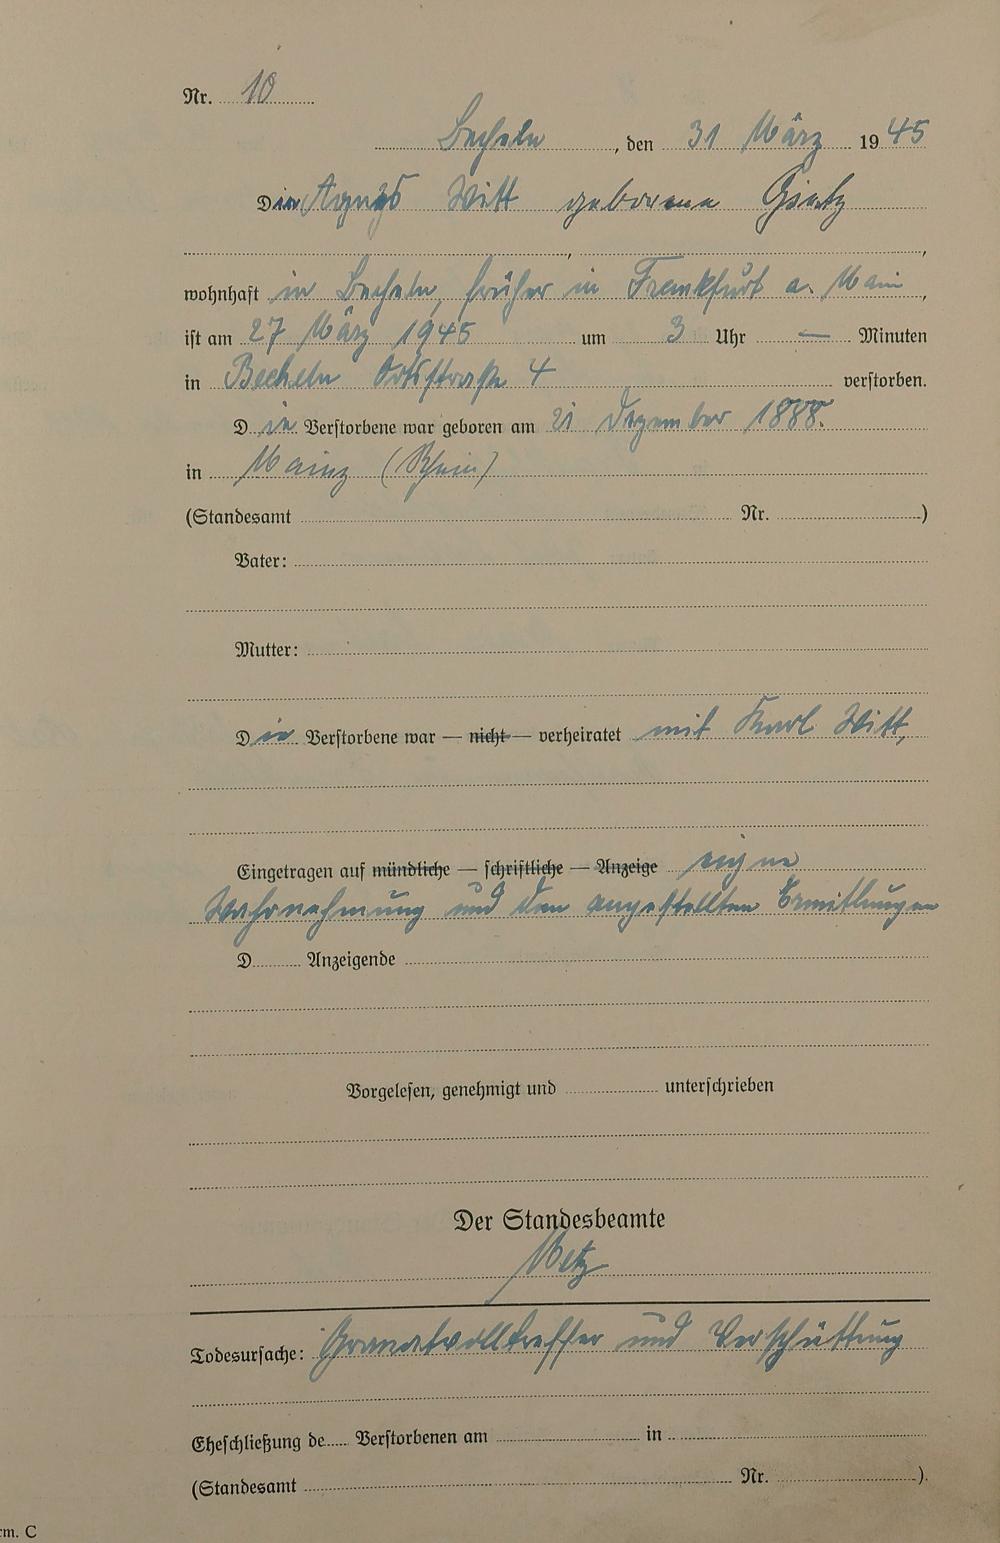 Nr. 10
Becheln, den 31 März 1945
Die Agnes Witt geborene
wohnhaft in Becheln, früher in Frankfurt a. Main,
ist am 27 März 1945 um 3 Uhr — Minuten
in Becheln Ortsstraße 4 verstorben.
Die Verstorbene war geboren am 21 Dezember 1888.
in Mainz (Rhein)
(Standesamt Nr. )
Vater:
Mutter:
Die Verstorbene war — nicht — verheiratet mit Karl Witt,
Eingetragen auf mündliche — schriftliche — Anzeige eigne
Wahrnehmung und den angestellten Ermittlungen
D Anzeigende
Vorgelesen, genehmigt und unterschrieben
Der Standesbeamte
Metz
Todesursache: Granatvolltreffer und Verschüttung
Eheschließung de Verstorbenen am in
(Standesamt Nr. ).
rm. C